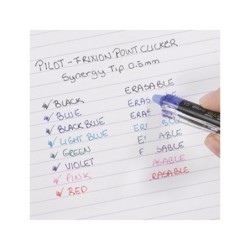 PILOT - FRIXION POINT CLICKER
Synergy Tip 0.5mm
BLACK ERASABLE
BLUE ERAS
BLACK BLUE ERA
LIGHT BLUE ER BLE
GREEN E ABLE
VIOLET SABLE
PINK ASABLE
RED RASABLE